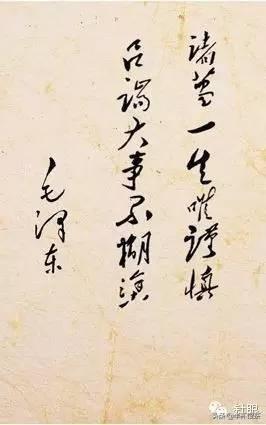 诸葛一生唯谨慎
吕端大事不糊涂
毛泽东
针眼